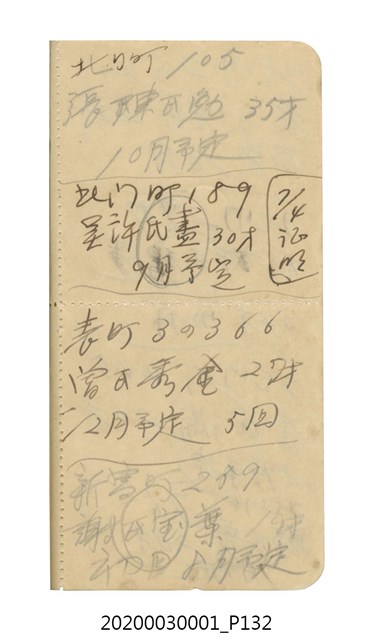 北門町 105
張陳氏勉 35才
10月予定
北門町 189
吳許氏盡 30才
9月予定
7/4
证明
表町 3の366
曾氏秀金 27才
12月予定 5回
新富町 2の9
謝氏宝葉
初回 8月予定
20200030001_P132